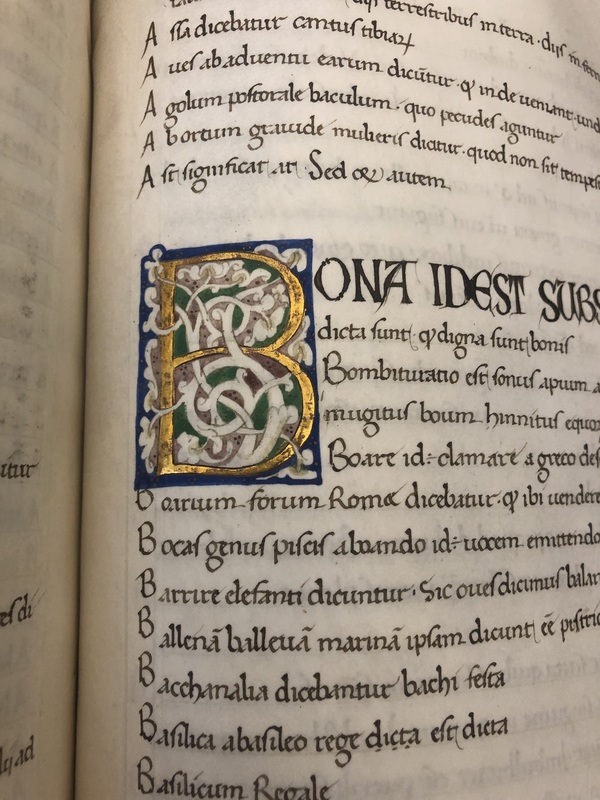 dijs terrestribus in terra · dijs in fern
Assa dicebatur cantus tibiaꝝ
Aues ab aduentu earum dicūtur · ꝙ inde ueniant · und
Agolum postorale baculum · quo pecudes aguntur
Abortum grauide mulieris dicitur · quod non sit tempest
Ast significat at Sed autem
BONA IDEST SUBS
dicta sunt · ꝙ digna sunt bonis
Bombituratio est sonus apium a
mugitus boum hinnitus equoꝝ
Boare id÷ clamare a greco des
Boarium forum Romæ dicebatur · ꝙ ibi uendere
Bocas genus piscis aboando id÷ uocem emittendo
Barrire elefanti dicuntur · Sic oues dicimus balar
Ballenā balleuā marinā ipsam dicunt eē pistric
Bacchanalia dicebantur bachi festa
Basilica abasileo rege dicta est dicta
Basilicum Regale
itur
es di
ad